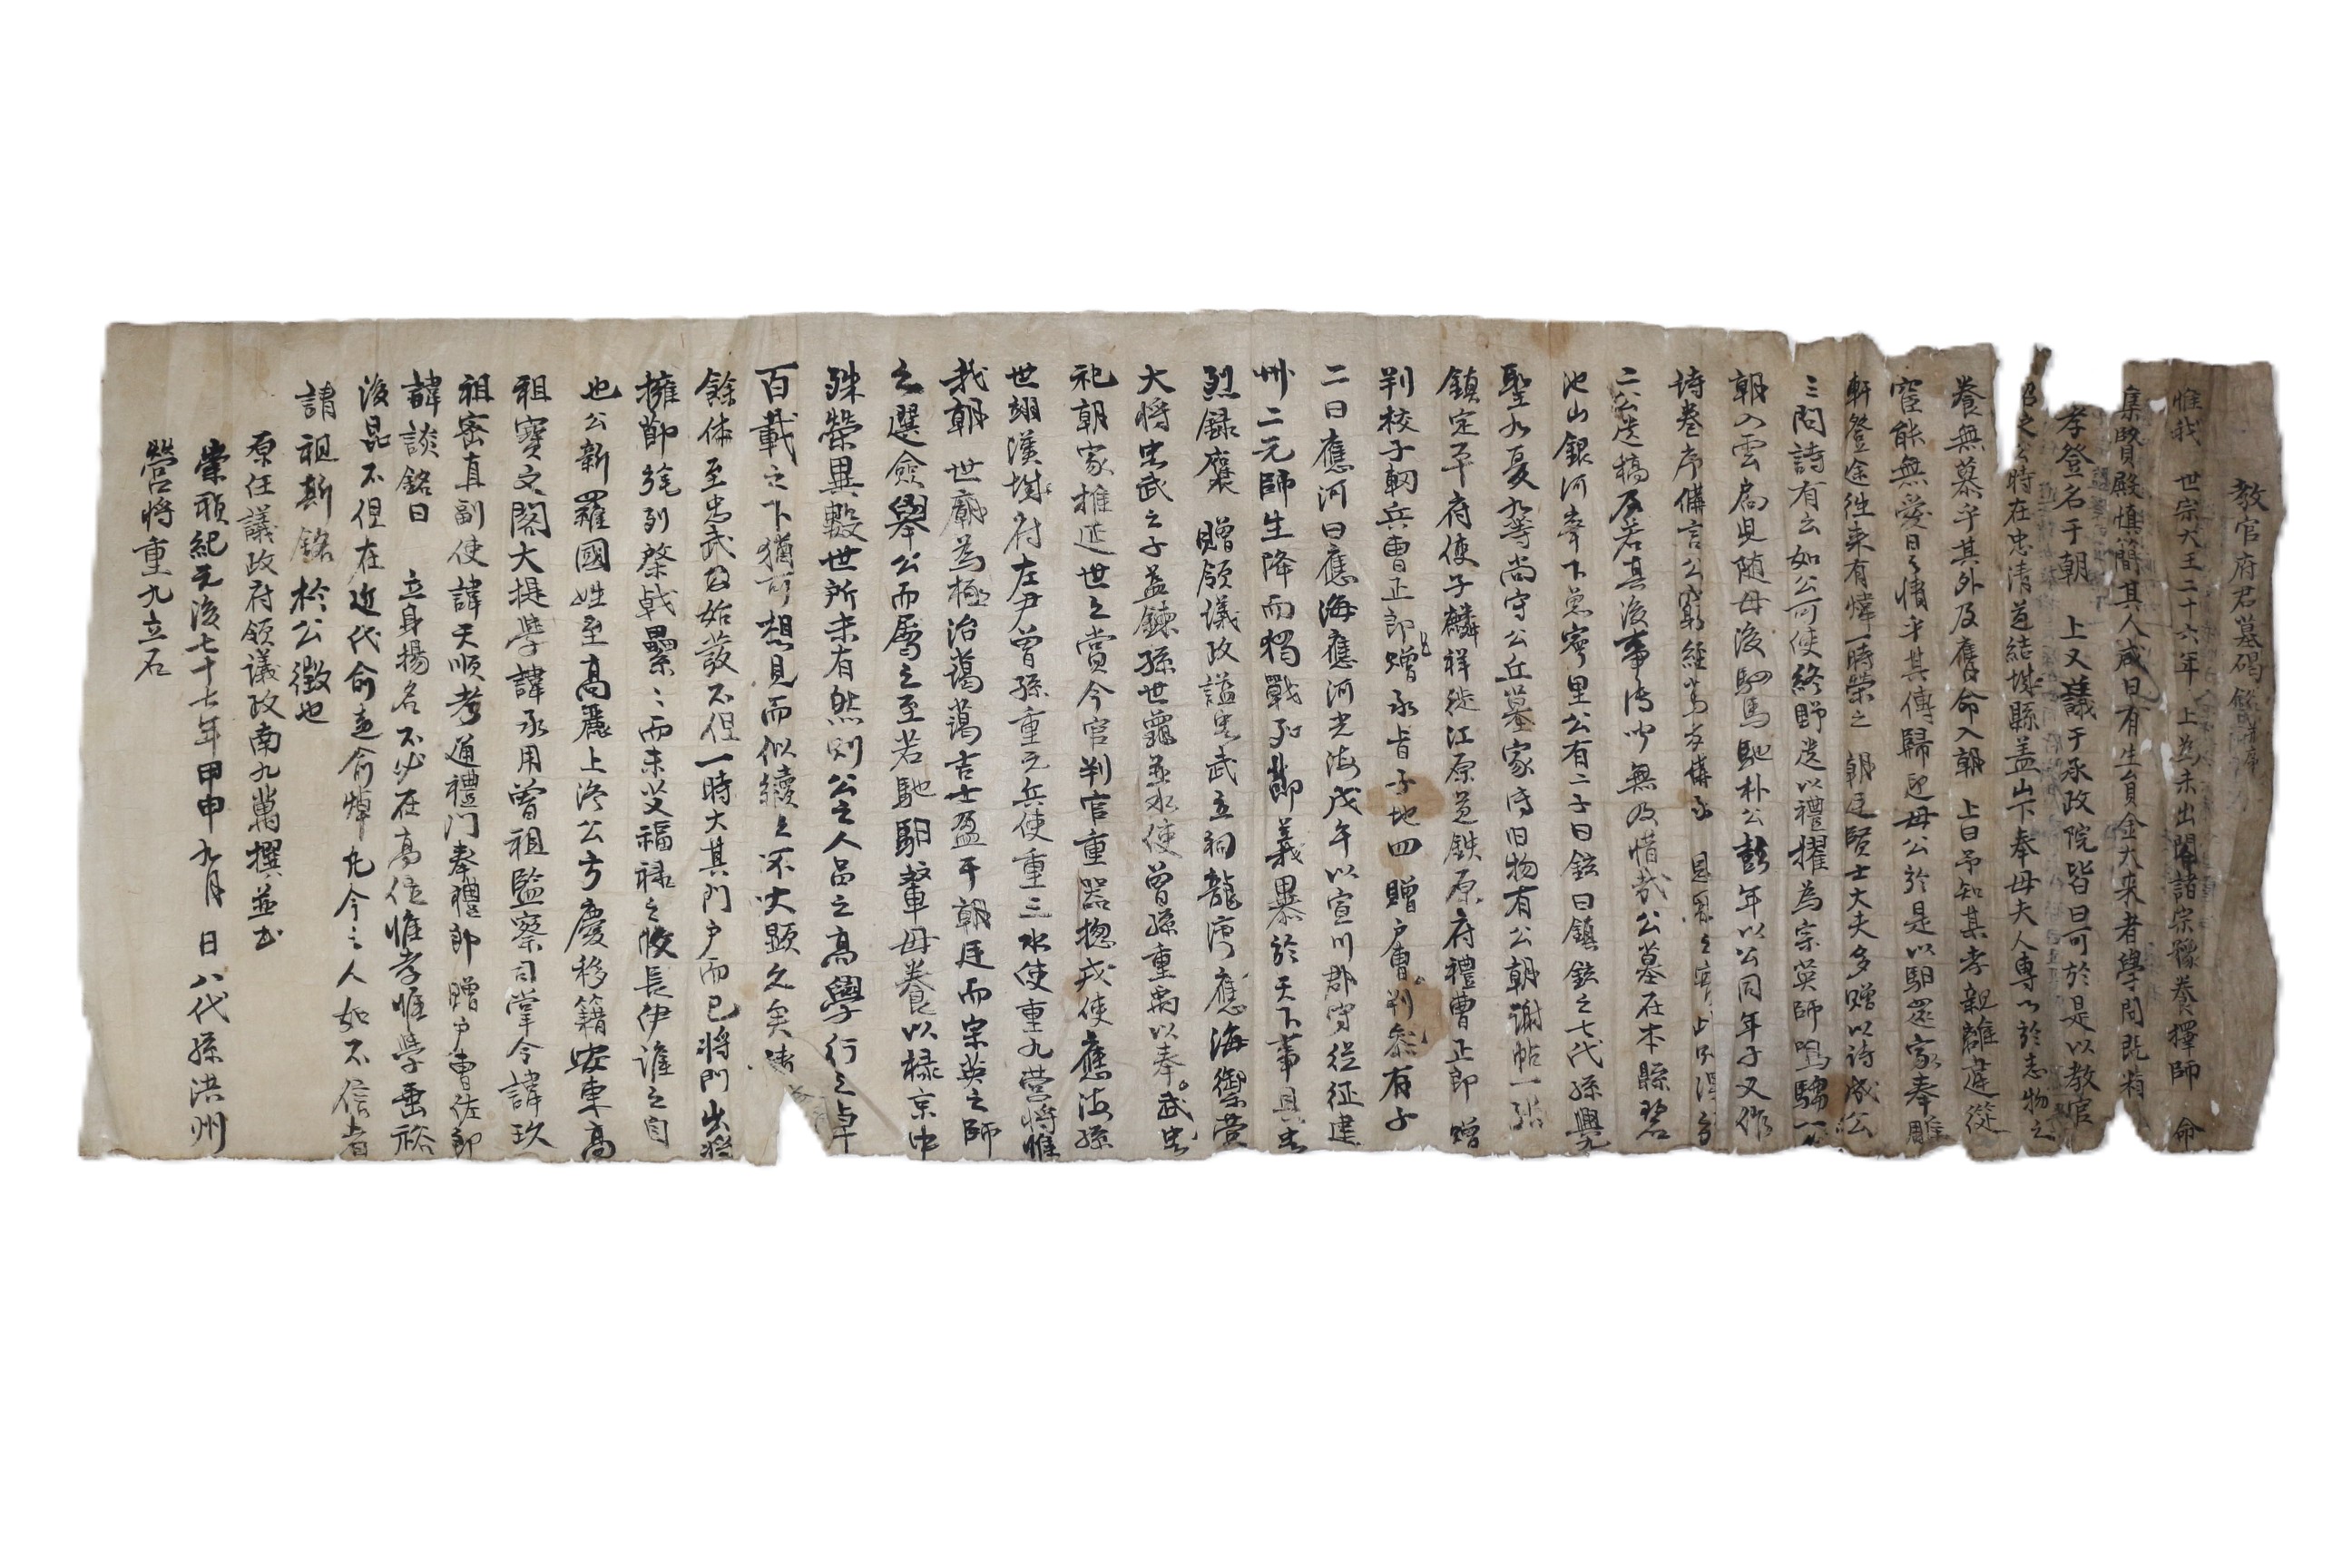 教官府君墓碣銘并序
惟我 世宗大王二十六年 上為未出閤諸宗豫養擇師 命
集賢殿慎簡其人咸曰有生員金大來者學問既有
孝登名于朝 上又議于承政院皆曰可於是以教官
招之公時在忠清道結城縣盖山下奉母夫人專心於志物之
養無慕乎其外及膺命入朝 上曰予知其孝親離違從
宦能無愛日之情乎其傳歸迎母公於是以馹還家奉
軒登途往來有煒一時榮之 朝廷賢士大夫多贈以詩成公
三問詩有云如公可使終野送以禮擢為宗英師鳴騶一
朝入雲扃見隨母後駟馬馳朴公彭年以公同年子又作
詩卷序備言公窮經篤
二公送稿及若其後事傳 無及惜哉公墓在本縣
池山銀河峯下 里公有二子曰鉉曰鎮鉉之七代孫興
聖九夏九等尚守公丘墓家傳旧物有公朝謝帖一張
鎮定平府使子麟祥徙江原道鉄原府禮曹正郎 贈
判校子軔兵曹正郎贈承旨子地四 贈户曹判叅有子
二曰應河曰應海應河光海戊午以宣川郡守從征建
州二元師生降而獨戰死節義暴於天下事具忠
烈録褒 贈領議政謚忠武立祠龍灣應海御營
大将忠武之子益鍊孫世龜並水使曾孫重禹以奉武忠
祀朝家推延世之賞今官判官重器捴戎使應海孫
世翊漢城府左尹曾孫重元兵使重三水使重九營将惟
我朝 世廟為極治藹藹吉士盈于朝廷而宗英之師
之選僉舉公而屬之至若馳馹輦母養以禄京中
殊榮異數世所未有然則公之人品之高學行之卓
百載之下猶可想見而似續之不大顯久矣
餘休至忠武公始發不但一時大其門户而已将門出将
擁節旄列棨戟纍〻而未艾福禄之攸長伊誰之自
也公新羅國姓至高麗上洛公方慶移籍安東高
祖寶文閣大提學諱承用曾祖監察司掌令諱玖
祖密直副使諱天順考通禮門奉禮郎 贈户曹佐郎
諱談銘曰 立身揚名不必在高位惟孝惟學垂裕
後昆不但在近代俞遠俞焯凡今之人如不信者
請祖斯銘於公徵也
原任議政府領議政南九萬撰並書
崇禎紀元後七十七年甲申九月 日八代孫洪州
營将重九立石